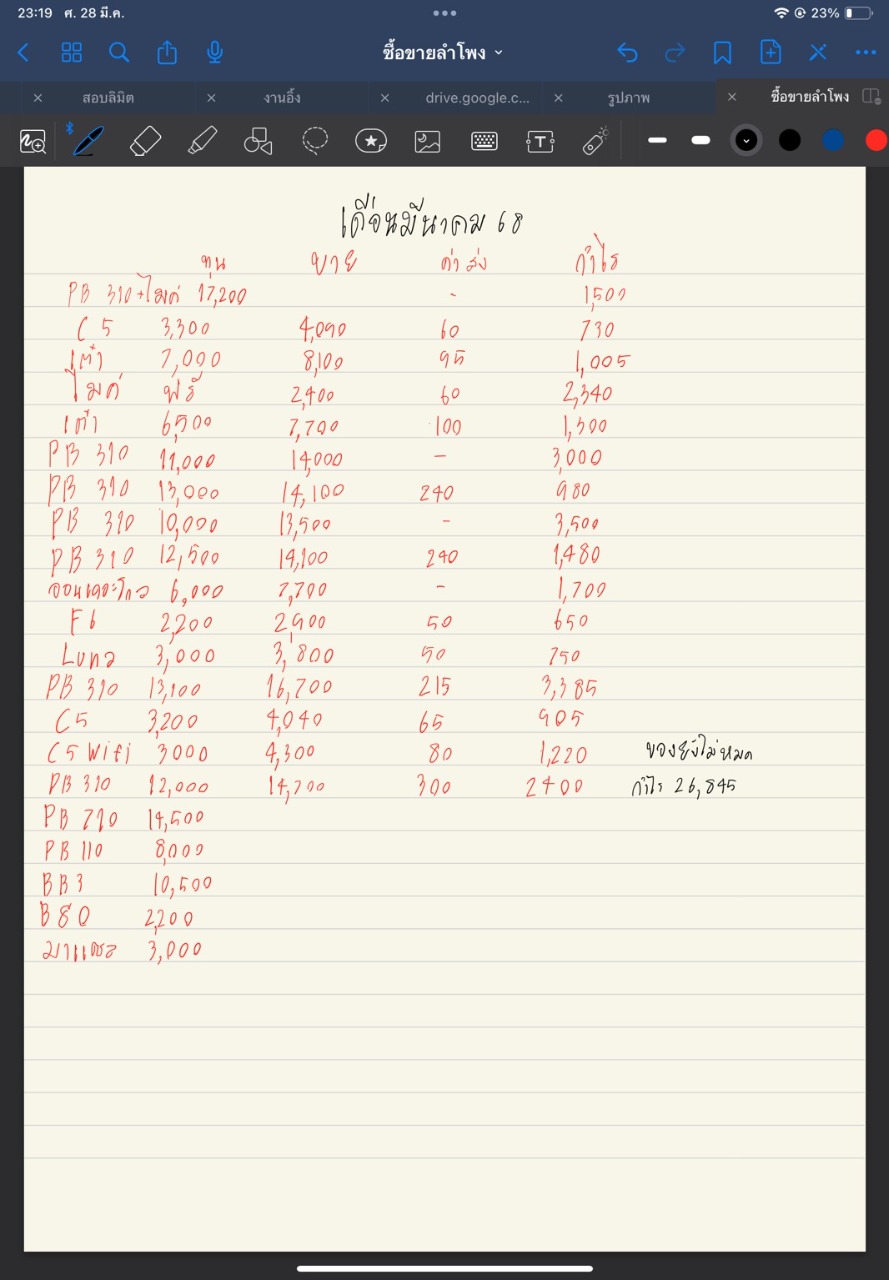 23:19 ศ. 28 มี.ค. 23%
ซื้อขายลำโพง
สอบลิมิต งานอิ้ง drive.google.c... รูปภาพ ซื้อขายลำโพง
เดือนมีนาคม 68
ทุน ขาย ค่าส่ง กำไร
PB 310+ไมค์ 17,200 - 1,500
C5 3,300 4,090 60 730
เต๋า 7,000 8,100 95 1,005
ไมค์ ฟรี 2,400 60 2,340
เต๋า 6,500 7,700 100 1,300
PB 310 11,000 14,000 - 3,000
PB 310 13,000 14,100 240 980
PB 310 10,000 13,500 - 3,500
PB 310 12,500 14,100 240 1,480
ออนเดอะโกว 6,000 7,700 - 1,700
F6 2,200 2,900 50 650
Luna 3,000 3,800 50 750
PB 310 13,100 16,700 215 3,385
C5 3,200 4,040 65 905
C5 Wifi 3000 4,300 80 1,220 ของยังไม่หมด
PB 310 12,000 14,700 300 2400 กำไร 26,845
PB 710 14,500
PB 110 8,000
BB3 10,500
B80 2,200
3,000